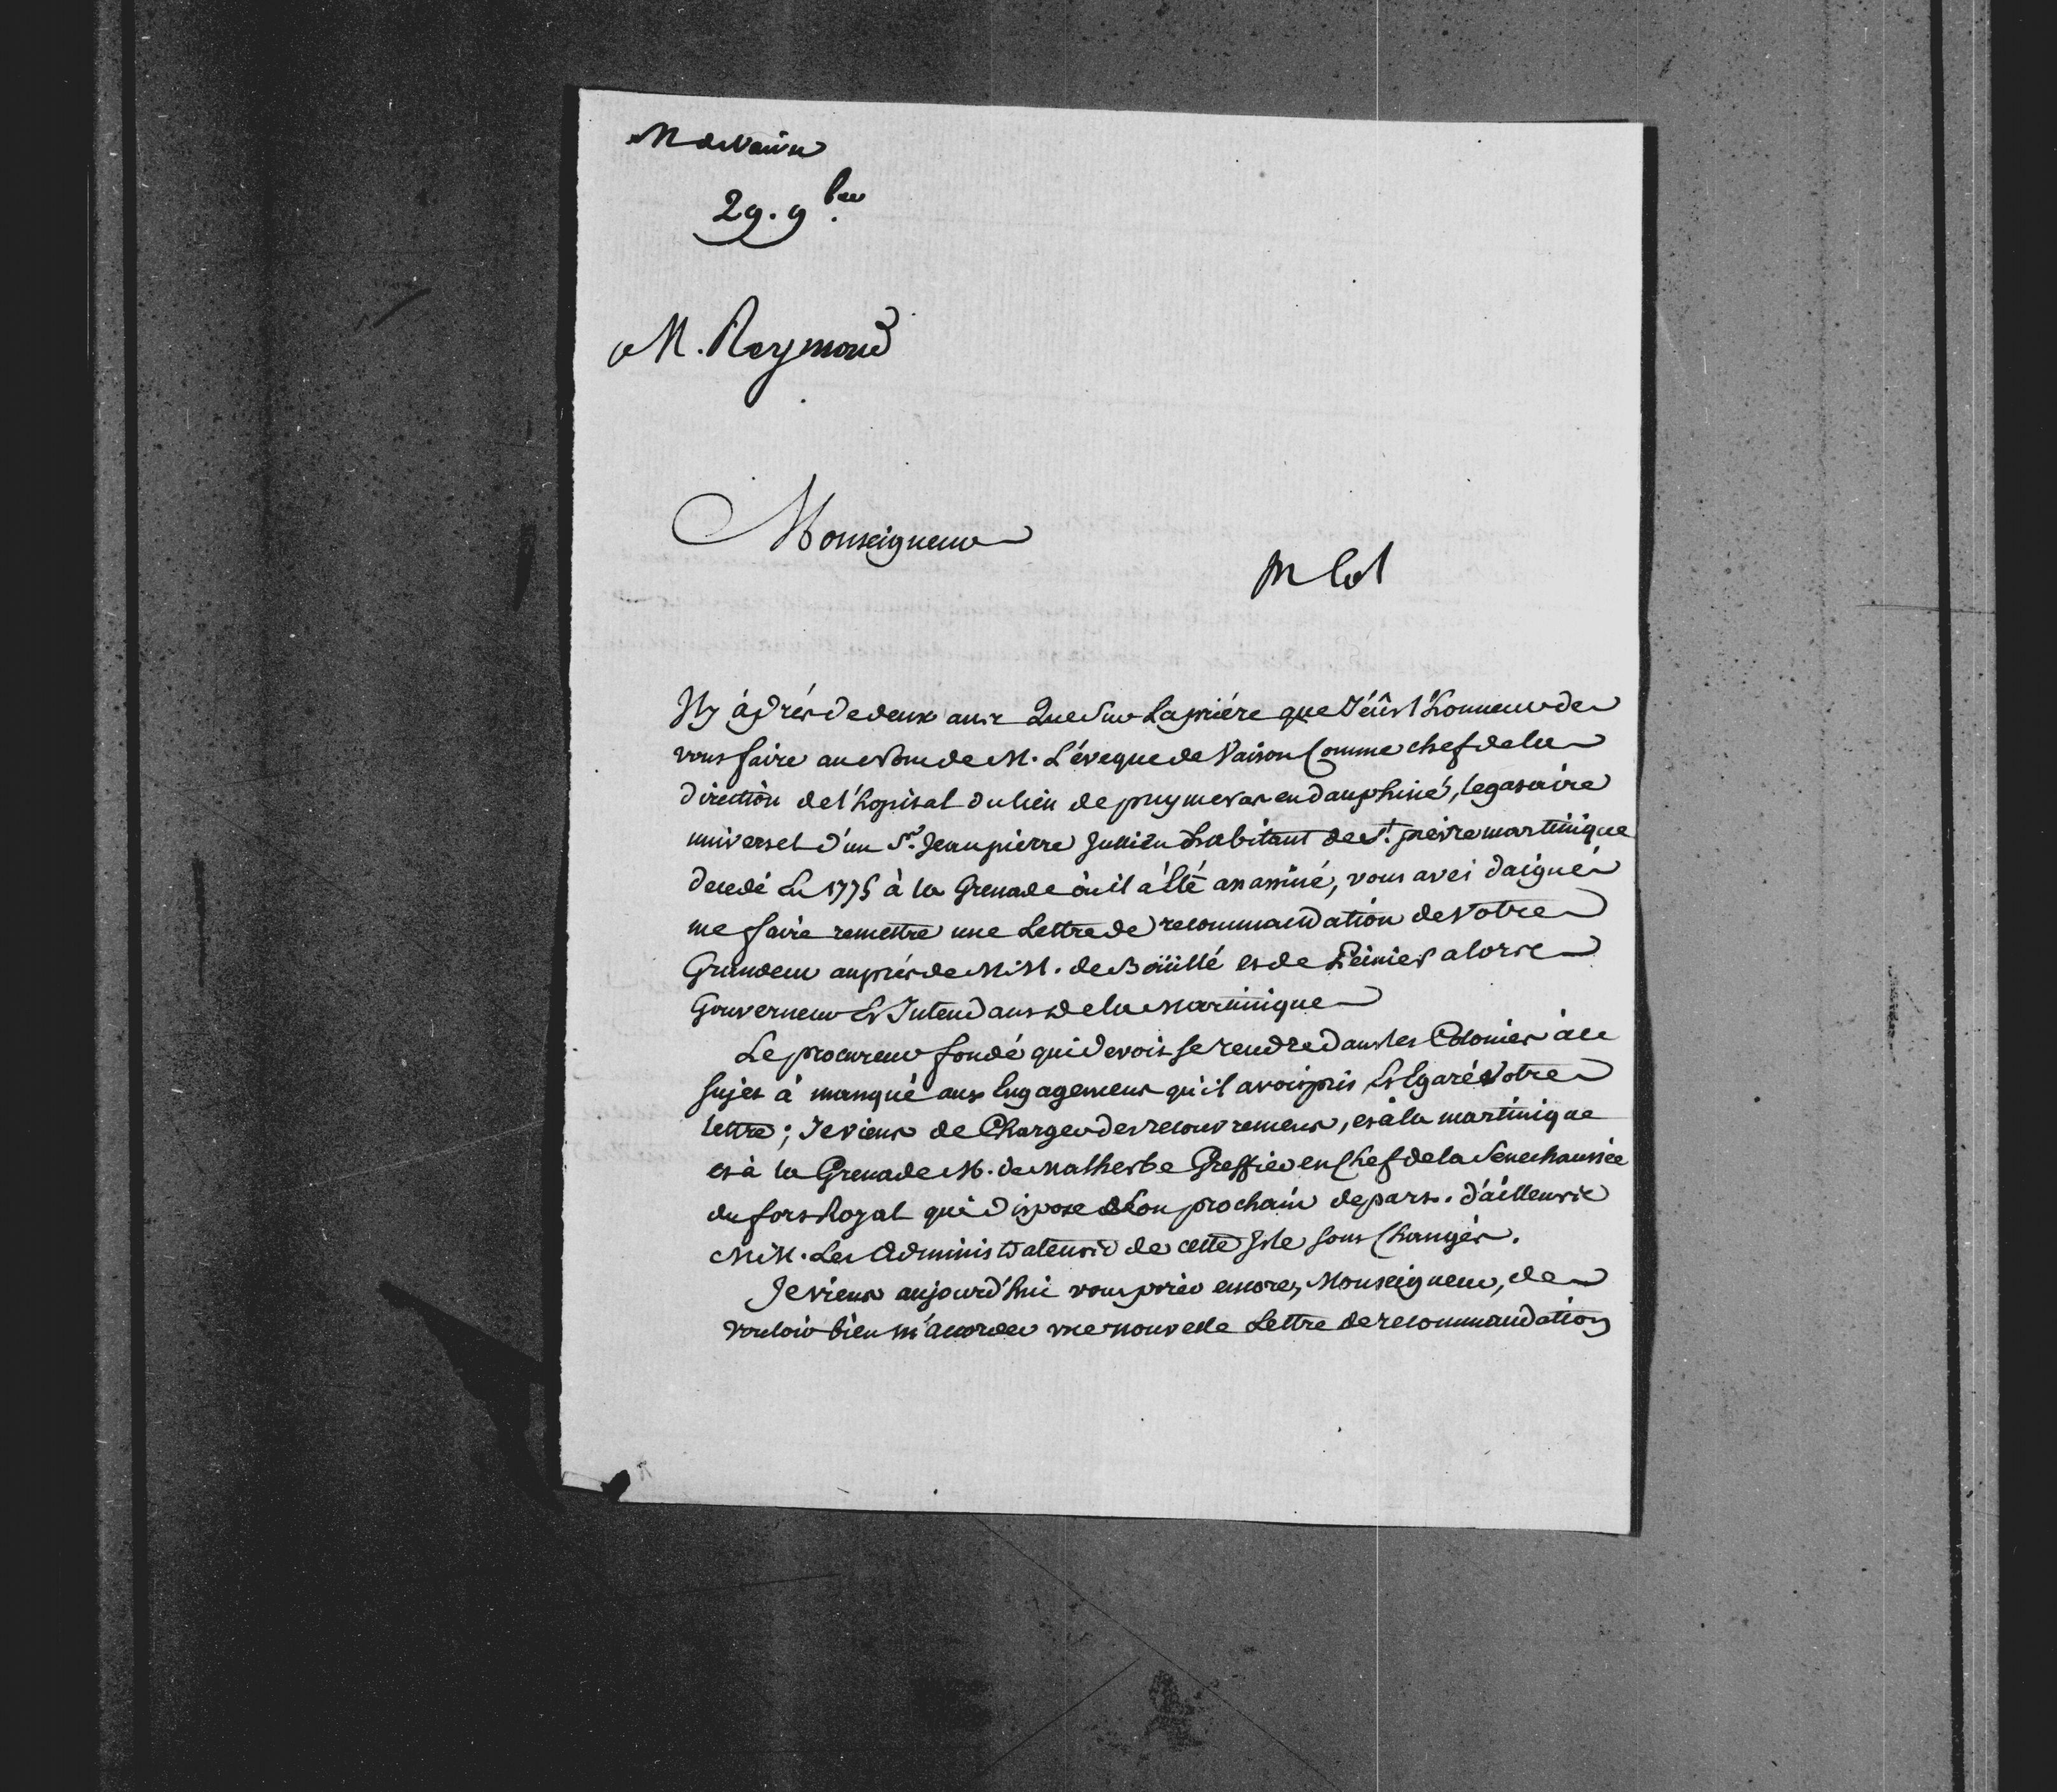 M de Vaivre
29. 9bre
M. Raymond
Monseigneur
Il y à près de deux ans Que Sur La prière que J'eûs l'honneur de
vous faire au Nom de M. L'éveque de Vaison Comme chef de la
direction de l'hopital du lieu de puymeras en dauphiné, legataire
universel d'un Sr. Jean pierre Jullien habitant de St. pierre martinique
decedé En 1775 à la Grenade òu il a Eté assassiné, vous avez daigné
me faire remettre une Lettre de recommandation de Votre
Grandeur auprès de MM. de Boüillé et de Peinier alors
Gouverneur Et Intendant de la Martinique
Le procureur fondé qui devoit se rendre dans les Colonies à ce
sujet à manqué aux Engagemens qu'il avoit pris Et Egaré Votre
lettre; Je viens de Charger des recouvremens, et à la martinique
et à la Grenade M. de Malherbe Greffier en Chef de la Senechaussée
du fort Royal qui dispose Son prochain depart. d'ailleurs
MM. Les Administrateurs de cette Isle sont Changés.
Je viens aujourd'hui vous prier encore, Monseigneur, de
vouloir bien m'accorder une nouvelle Lettre de recommandation